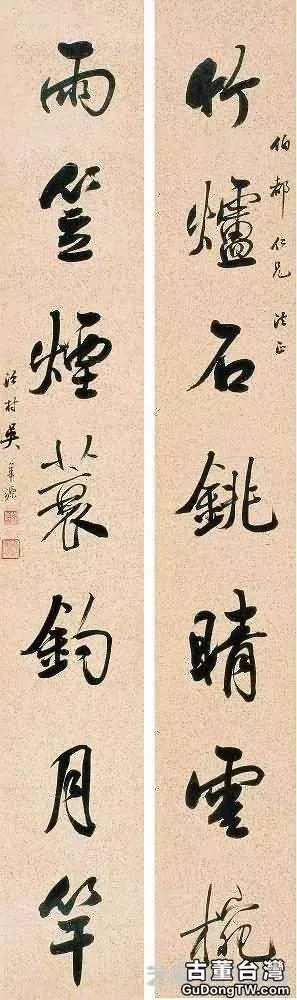 伯都仁兄法正
竹爐石銚晴雲椀
雨笠煙蓑釣月竿
村吳源
古董台灣
GuDongTW.com